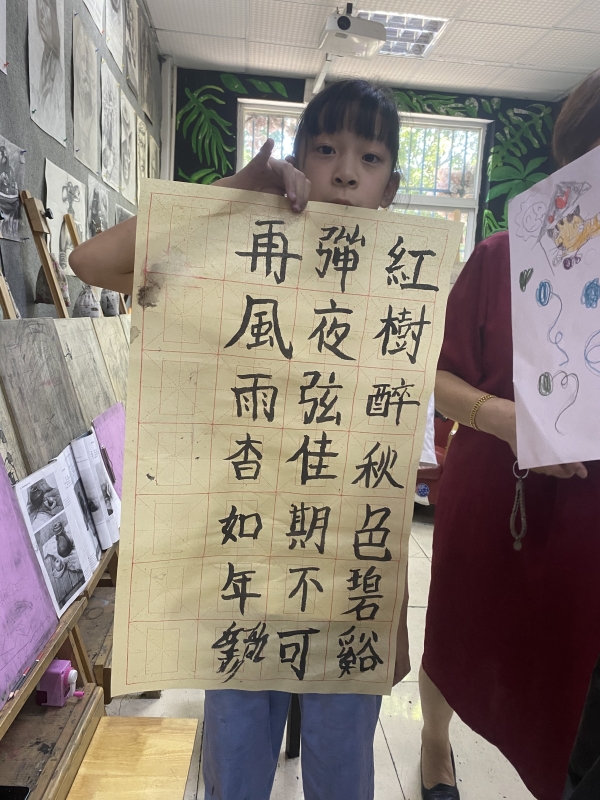 紅樹醉秋色碧谿
彈夜弦佳期不可
再風雨杳如年